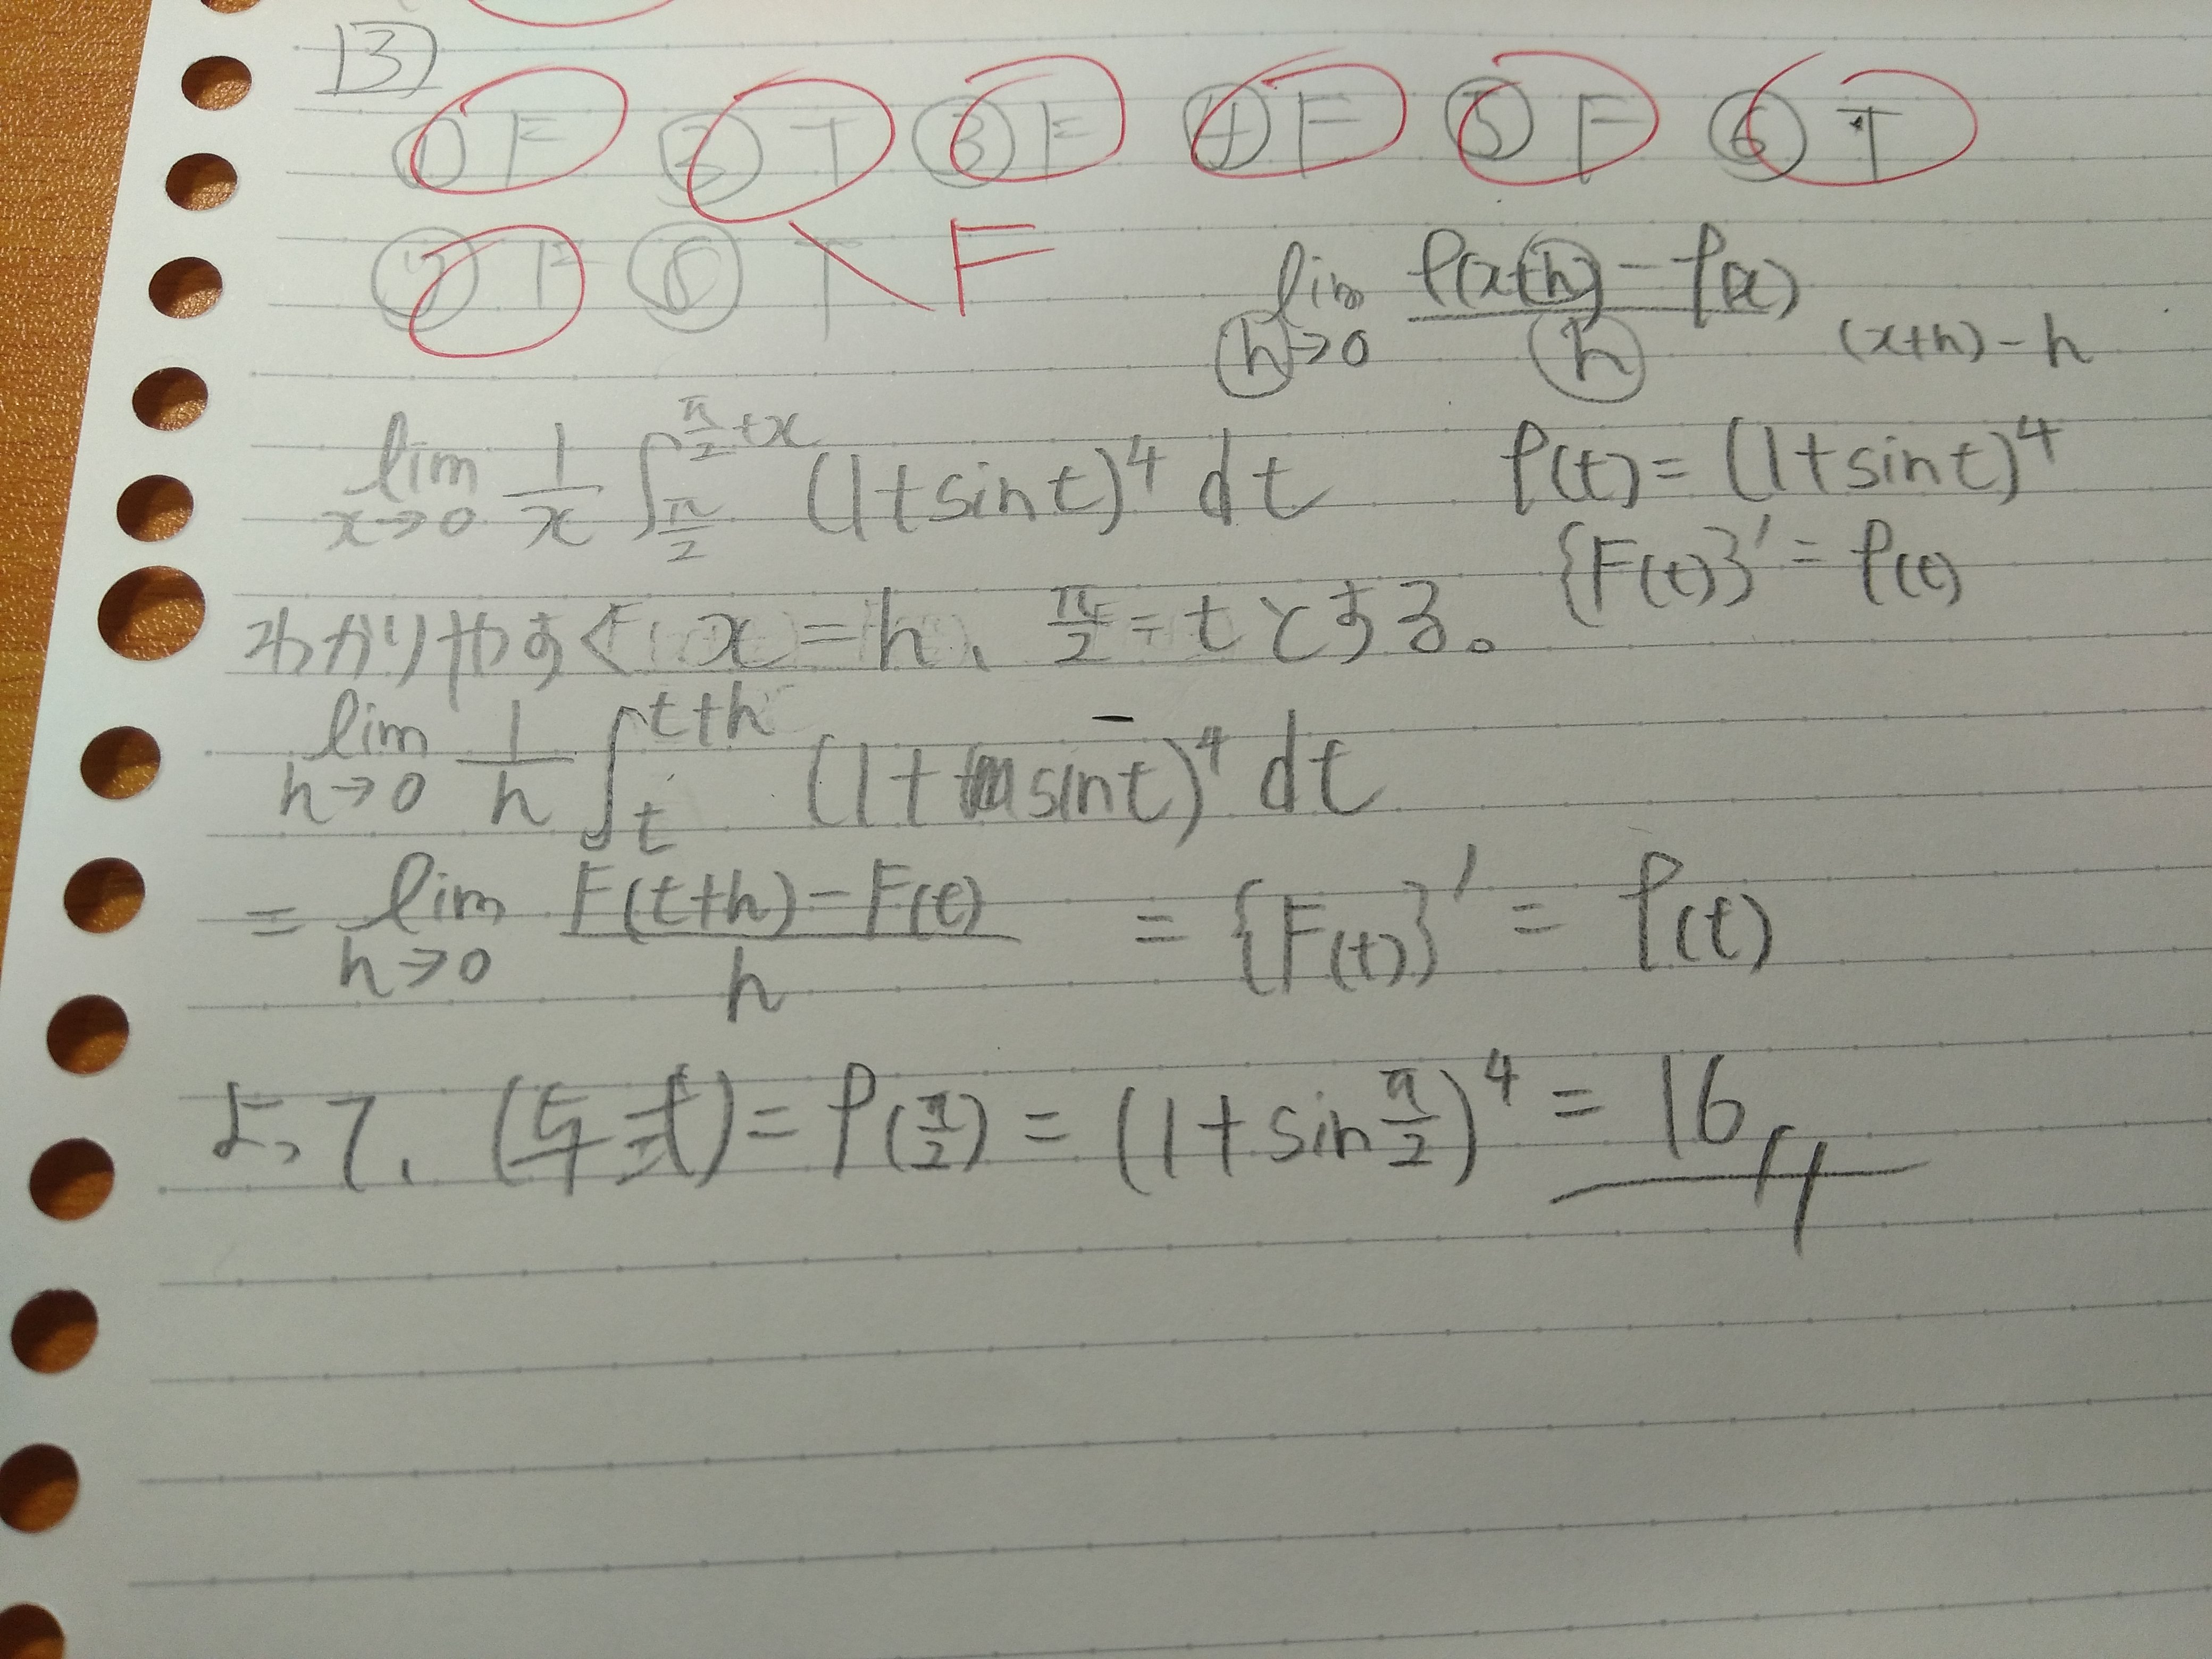 13)
① F ② T ③ F ④ F ⑤ F ⑥ T
⑦ F ⑧ T \ F
lim_{h→0} (f(x+h) - f(x))/h (x+h)-h
lim_{x→0} 1/x ∫_{π/2}^{π/2+x} (1+sin t)^4 dt f(t) = (1+sin t)^4
{F(t)}' = f(t)
わかりやすく x = h、 π/2 = t とする。
lim_{h→0} 1/h ∫_t^{t+h} (1+ sin t)^4 dt
= lim_{h→0} (F(t+h) - F(t))/h = {F(t)}' = f(t)
よって、(与式) = f(π/2) = (1+sin π/2)^4 = 16